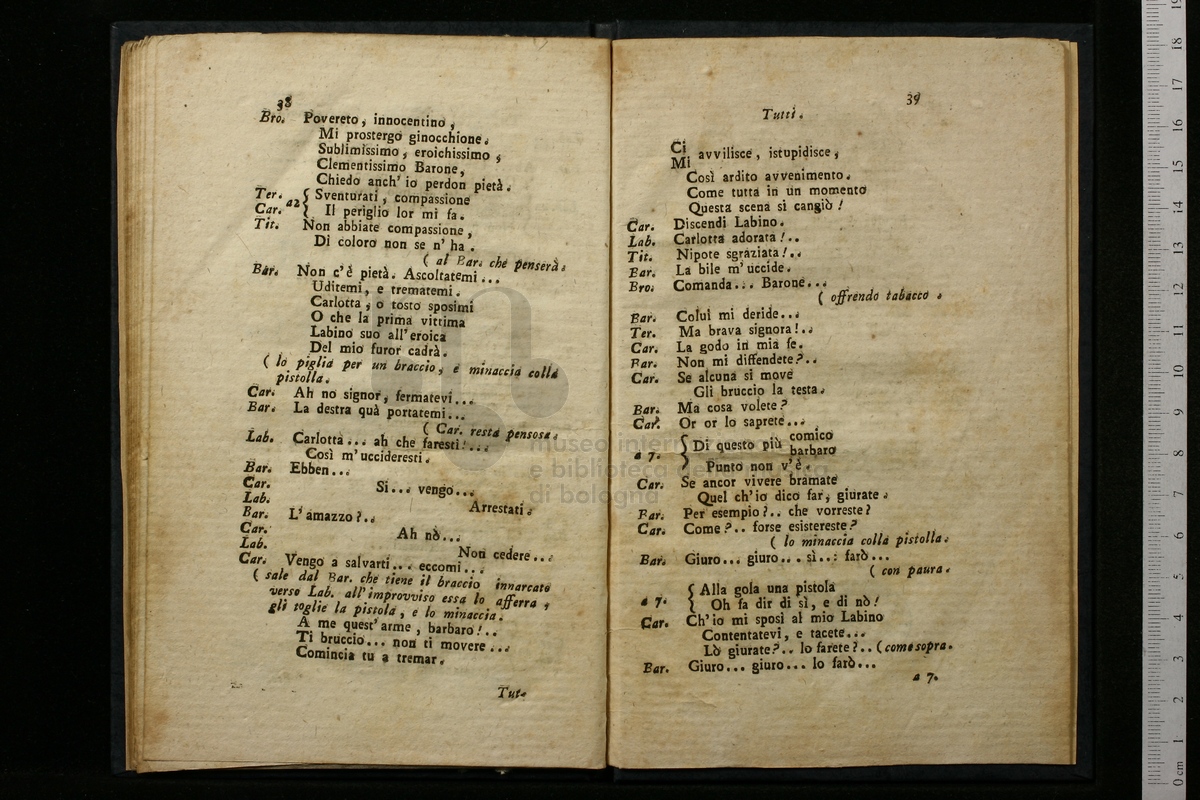 38
Bro. Povereto, innocentino,
Mi prostergo ginocchione.
Sublimissimo, eroichissimo,
Clementissimo Barone,
Chiedo anch' io perdon pietà.
Ter. Car. a2 { Sventurati, compassione
Il periglio lor mi fa.
Tit. Non abbiate compassione,
Di coloro non se n' ha.
( al Bar. che penserà.
Bar. Non c'è pietà. Ascoltatemi...
Uditemi, e trematemi.
Carlotta, o tosto sposimi
O che la prima vittima
Labino suo all'eroica
Del mio furor cadrà.
( lo piglia per un braccio, e minaccia colla
pistolla.
Car. Ah no signor, fermatevi...
Bar. La destra quà portatemi...
( Car. resta pensosa.
Lab. Carlotta... ah che faresti!...
Così m'uccideresti.
Bar. Ebben...
Car. Si... vengo...
Lab. Arrestati.
Bar. L'amazzo?..
Car. Ah nò...
Lab. Non cedere...
Car. Vengo a salvarti... eccomi...
( sale dal Bar. che tiene il braccio innarcato
verso Lab. all'improvviso essa lo afferra,
gli toglie la pistola, e lo minaccia.
A me quest'arme, barbaro!..
Ti bruccio... non ti movere...
Comincia tu a tremar.
Tut.
39
Tutti.
Ci
Mi avvilisce, istupidisce,
Così ardito avvenimento.
Come tutta in un momento
Questa scena si cangiò!
Car. Discendi Labino.
Lab. Carlotta adorata!..
Tit. Nipote sgraziata!..
Bar. La bile m'uccide.
Bro. Comanda... Barone...
( offrendo tabacco.
Bar. Colui mi deride...
Ter. Ma brava signora!..
Car. La godo in mia fe.
Bar. Non mi diffendete?..
Car. Se alcuna si move
Gli bruccio la testa.
Bar. Ma cosa volete?
Car. Or or lo saprete...
a 7. { Di questo più comico
barbaro
Punto non v'è.
Car. Se ancor vivere bramate
Quel ch'io dico far, giurate.
Bar. Per esempio?.. che vorreste?
Car. Come?.. forse esistereste?
( lo minaccia colla pistolla.
Bar. Giuro... giuro... sì... farò...
( con paura.
a 7. { Alla gola una pistola
Oh fa dir di sì, e di nò!
Car. Ch'io mi sposi al mio Labino
Contentatevi, e tacete...
Lò giurate?.. lo farete?.. (come sopra.
Bar. Giuro... giuro... lo farò...
a 7.
museo inter
e biblioteca della musica
di bologna